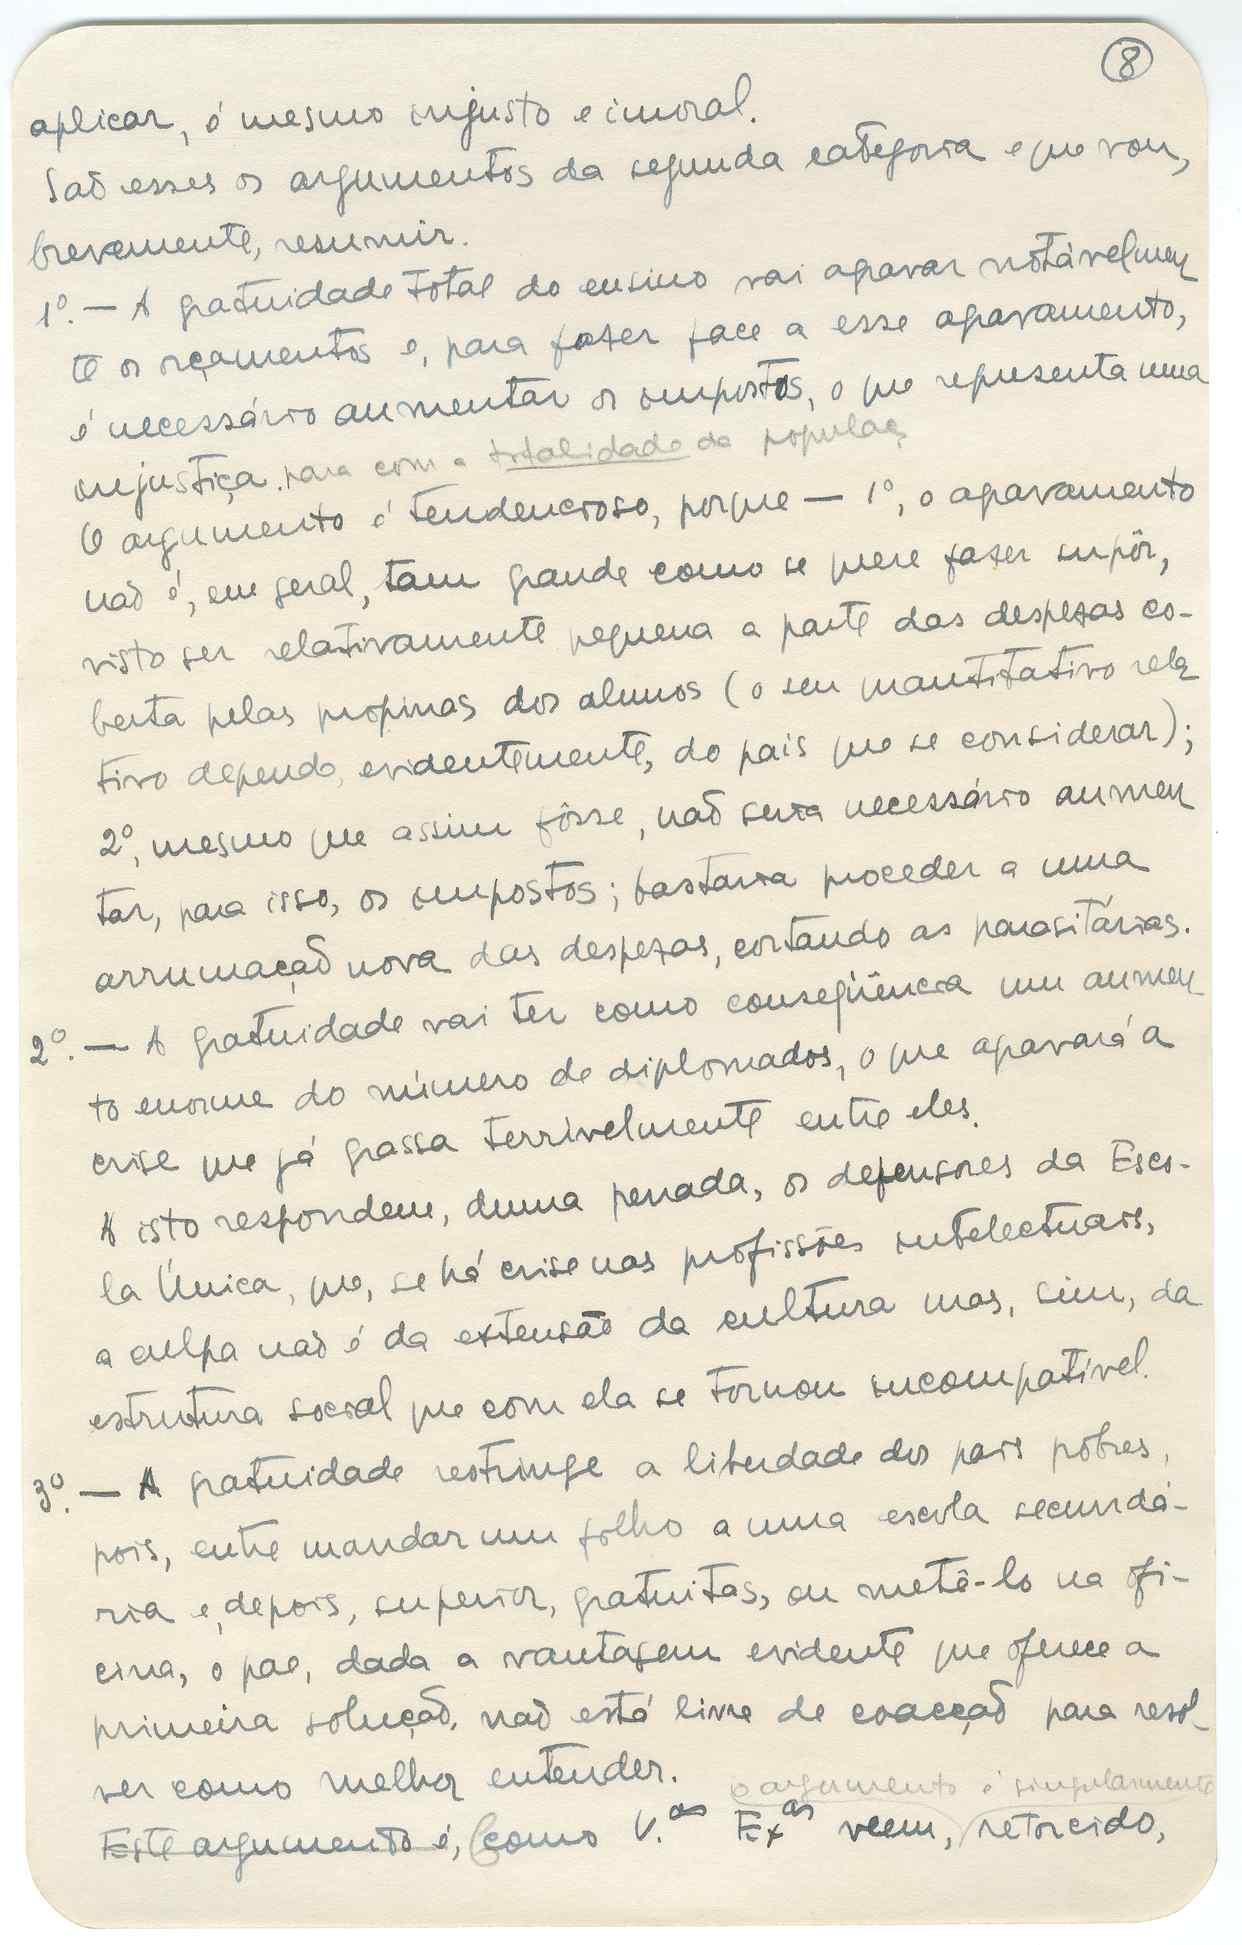 8
aplicar, é mesmo injusto e imoral.
Saõ esses os argumentos da segunda categoria e que vou,
brevemente, resumir.
1º. — A gratuidade total do ensino vai agravar notàvelmen
te os orçamentos e, para fazer face a esse agravamento,
é necessário aumentar os impostos, o que representa uma
injustiça. para com a totalidade da populaç
O argumento é tendencioso, porque — 1º, o agravamento
naõ é, em geral, tam grande como se quere fazer supôr,
visto ser relativamente pequena a parte das despezas co-
berta pelas propinas dos alunos (o seu quantitativo rela
tivo depende, evidentemente, do país que se considerar);
2º, mesmo que assim fôsse, naõ seria necessário aumen
tar, para isso, os impostos; bastaria proceder a uma
arrumaçaõ nova das despezas, cortando as parasitárias.
2º. — A gratuidade vai ter como conseqüência um aumen
to enorme do número de diplomados, o que agravará a
crise que já grassa terrivelmente entre eles.
A isto respondem, duma penada, os defensores da Esco-
la Única, que, se há crise nas profissões intelectuais,
a culpa naõ é da extensão da cultura mas, sim, da
estrutura social que com ela se tornou incompatível.
3º. — A gratuidade restringe a liberdade dos pais pobres,
pois, entre mandar um filho a uma escola secundá-
ria e, depois, superior, gratuitas, ou metê-lo na ofi-
cina, o pae, dada a vantagem evidente que oferece a
primeira soluçaõ, naõ está livre de coacçaõ para resol
ver como melhor entender.
o argumento é singularmente
Este argumento é, como V.as Exas veem, retorcido,